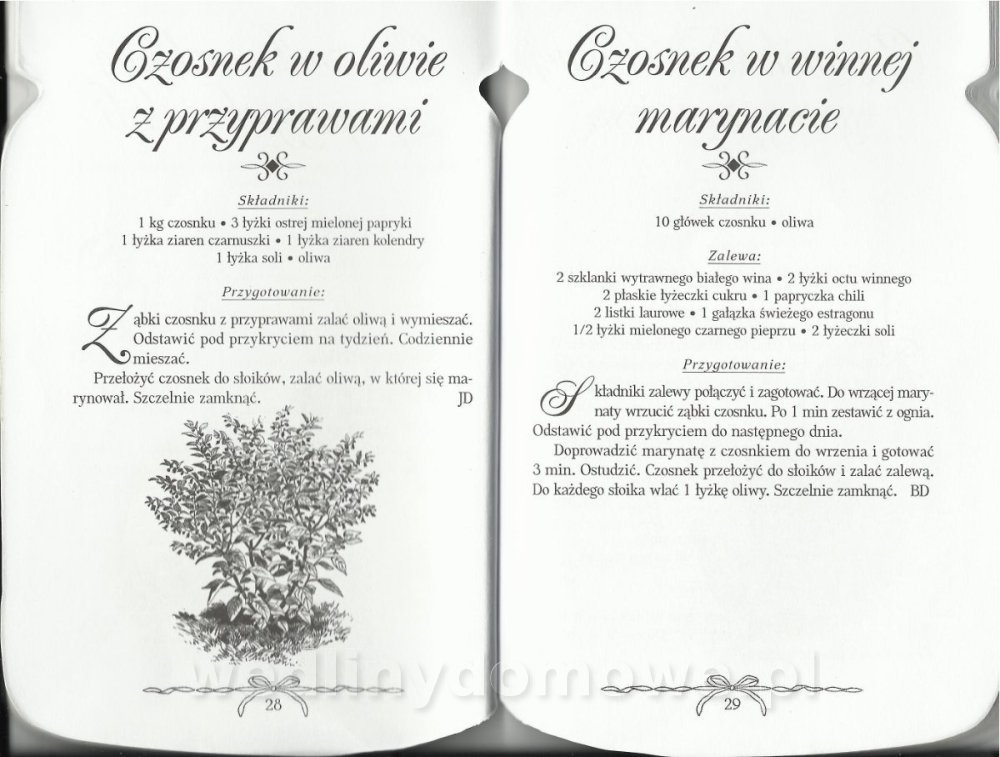 Czosnek w oliwie
z przyprawami
Składniki:
1 kg czosnku • 3 łyżki ostrej mielonej papryki
1 łyżka ziaren czarnuszki • 1 łyżka ziaren kolendry
1 łyżka soli • oliwa
Przygotowanie:
Ząbki czosnku z przyprawami zalać oliwą i wymieszać.
Odstawić pod przykryciem na tydzień. Codziennie
mieszać.
Przełożyć czosnek do słoików, zalać oliwą, w której się ma-
rynował. Szczelnie zamknąć. JD
28
Czosnek w winnej
marynacie
Składniki:
10 główek czosnku • oliwa
Zalewa:
2 szklanki wytrawnego białego wina • 2 łyżki octu winnego
2 płaskie łyżeczki cukru • 1 papryczka chili
2 listki laurowe • 1 gałązka świeżego estragonu
1/2 łyżki mielonego czarnego pieprzu • 2 łyżeczki soli
Przygotowanie:
Składniki zalewy połączyć i zagotować. Do wrzącej mary-
naty wrzucić ząbki czosnku. Po 1 min zestawić z ognia.
Odstawić pod przykryciem do następnego dnia.
Doprowadzić marynatę z czosnkiem do wrzenia i gotować
3 min. Ostudzić. Czosnek przełożyć do słoików i zalać zalewą.
Do każdego słoika wlać 1 łyżkę oliwy. Szczelnie zamknąć. BD
29
wedlinydomowe.pl